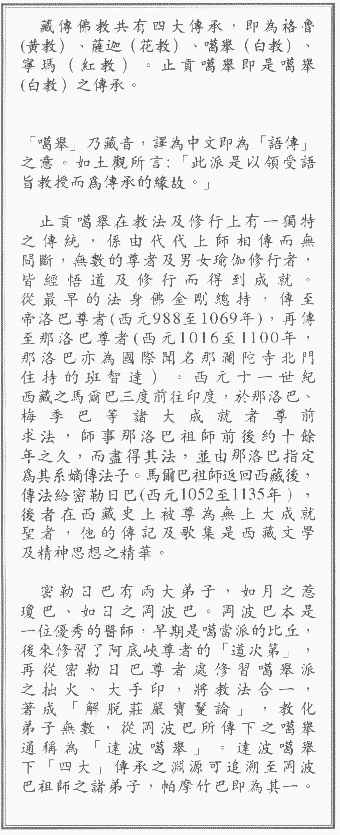 藏傳佛教共有四大傳承，即為格魯
(黃教）、薩迦（花教）、噶舉（白教）、
寧瑪（紅教）。止貢噶舉即是噶舉
(白教）之傳承。
「噶舉」乃藏音，譯為中文即為「語傳」
之意。如土觀所言:「此派是以領受語
旨教授而為傳承的緣故。」
止貢噶舉在教法及修行上有一獨特
之傳統，係由代代上師相傳而無
間斷，無數的尊者及男女瑜伽修行者，
皆經悟道及修行而得到成就。
從最早的法身佛金剛總持，傳至
帝洛巴尊者(西元988至1069年)，再傳
至那洛巴尊者(西元1016至1100年，
那洛巴亦為國際聞名那瀾陀寺北門
住持的班智達）。西元十一世紀
西藏之馬爾巴三度前往印度，於那洛巴、
梅季巴等諸大成就者尊前
求法，師事那洛巴祖師前後約十餘
年之久，而盡得其法，並由那洛巴指定
為其系嫡傳法子。馬爾巴祖師返回西藏後，
傳法給密勒日巴(西元1052至1135年），
後者在西藏史上被尊為無上大成就
聖者，他的傳記及歌集是西藏文學
及精神思想之精華。
密勒日巴有兩大弟子，如月之惹
瓊巴、如日之岡波巴。岡波巴本是
一位優秀的醫師，早期是噶當派的比丘，
後來修習了阿底峽尊者的「道次第」，
再從密勒日巴尊者處修習噶舉派
之拙火、大手印，將教法合一，
著成「解脫莊嚴寶鬘論」，教化
弟子無數，從岡波巴所傳下之噶舉
通稱為「達波噶舉」。達波噶舉
下「四大」傳承之淵源可追溯至岡波
巴祖師之諸弟子，帕摩竹巴即為其一。